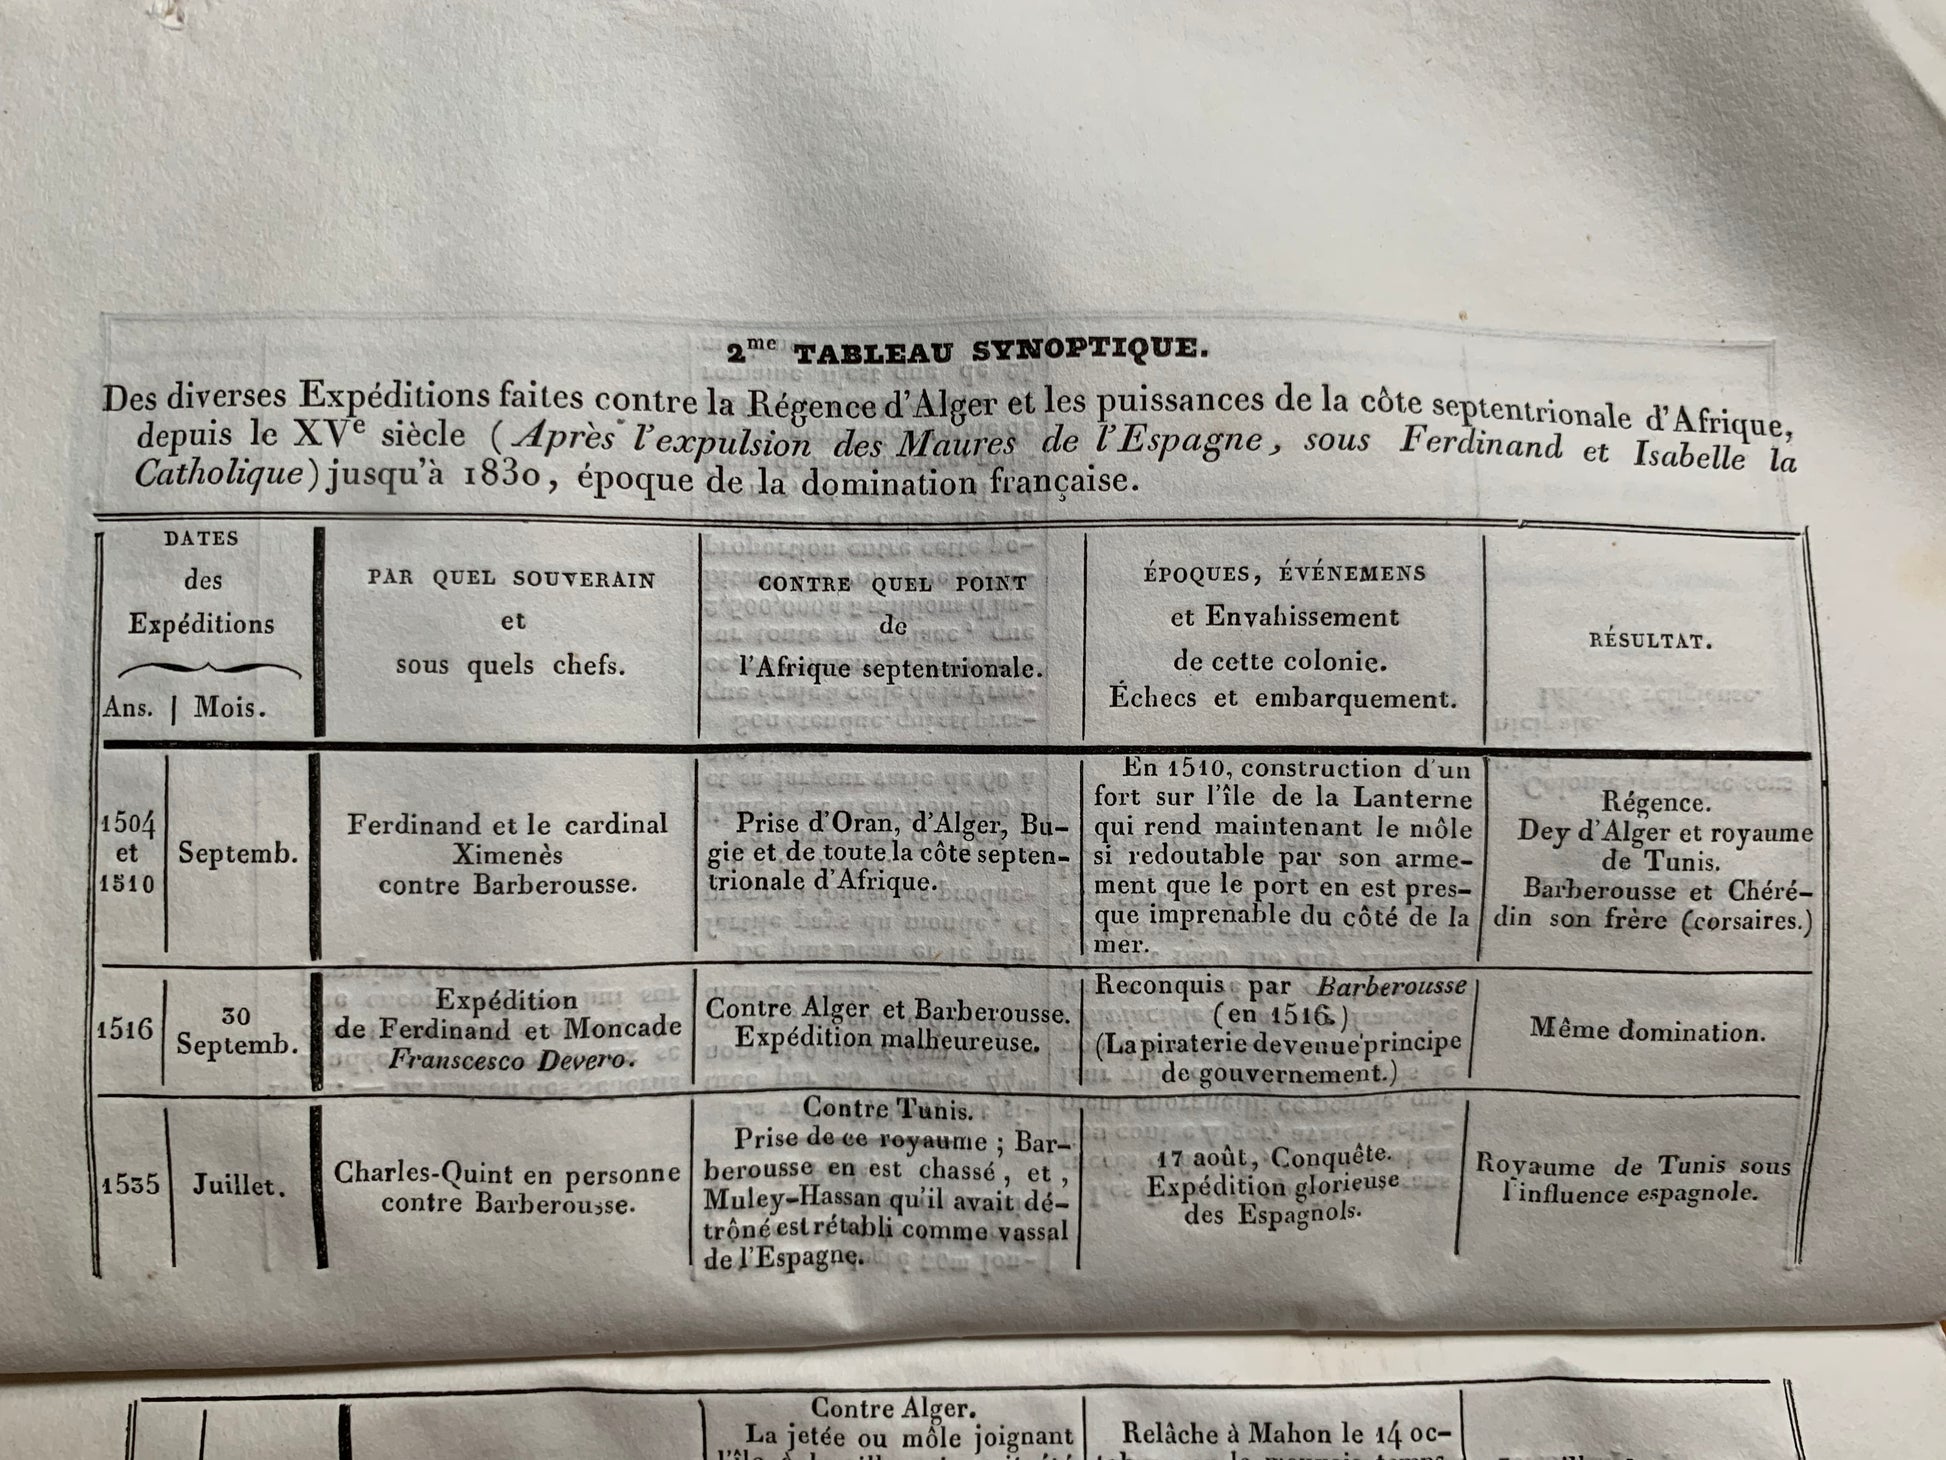 2me TABLEAU SYNOPTIQUE.
Des diverses Expéditions faites contre la Régence d'Alger et les puissances de la côte septentrionale d'Afrique,
depuis le XVe siècle (Après l'expulsion des Maures de l'Espagne, sous Ferdinand et Isabelle la
Catholique) jusqu'à 1830, époque de la domination française.
DATES
des
Expéditions
Ans. | Mois.
PAR QUEL SOUVERAIN
et
sous quels chefs.
CONTRE QUEL POINT
de
l'Afrique septentrionale.
ÉPOQUES, ÉVÉNEMENS
et Envahissement
de cette colonie.
Échecs et embarquement.
RÉSULTAT.
1504
et
1510
Septemb.
Ferdinand et le cardinal
Ximenès
contre Barberousse.
Prise d'Oran, d'Alger, Bu-
gie et de toute la côte septen-
trionale d'Afrique.
En 1510, construction d'un
fort sur l'île de la Lanterne
qui rend maintenant le môle
si redoutable par son arme-
ment que le port en est pres-
que imprenable du côté de la
mer.
Régence.
Dey d'Alger et royaume
de Tunis.
Barberousse et Chéré-
din son frère (corsaires.)
1516
30
Septemb.
Expédition
de Ferdinand et Moncade
Franscesco Devero.
Contre Alger et Barberousse.
Expédition malheureuse.
Reconquis par Barberousse
(en 1516.)
(La piraterie devenue principe
de gouvernement.)
Même domination.
1535
Juillet.
Charles-Quint en personne
contre Barberousse.
Contre Tunis.
Prise de ce royaume ; Bar-
berousse en est chassé, et,
Muley-Hassan qu'il avait dé-
trôné est rétabli comme vassal
de l'Espagne.
17 août, Conquête.
Expédition glorieuse
des Espagnols.
Royaume de Tunis sous
l'influence espagnole.
Contre Alger.
La jetée ou môle joignant
Relâche à Mahon le 14 oc-